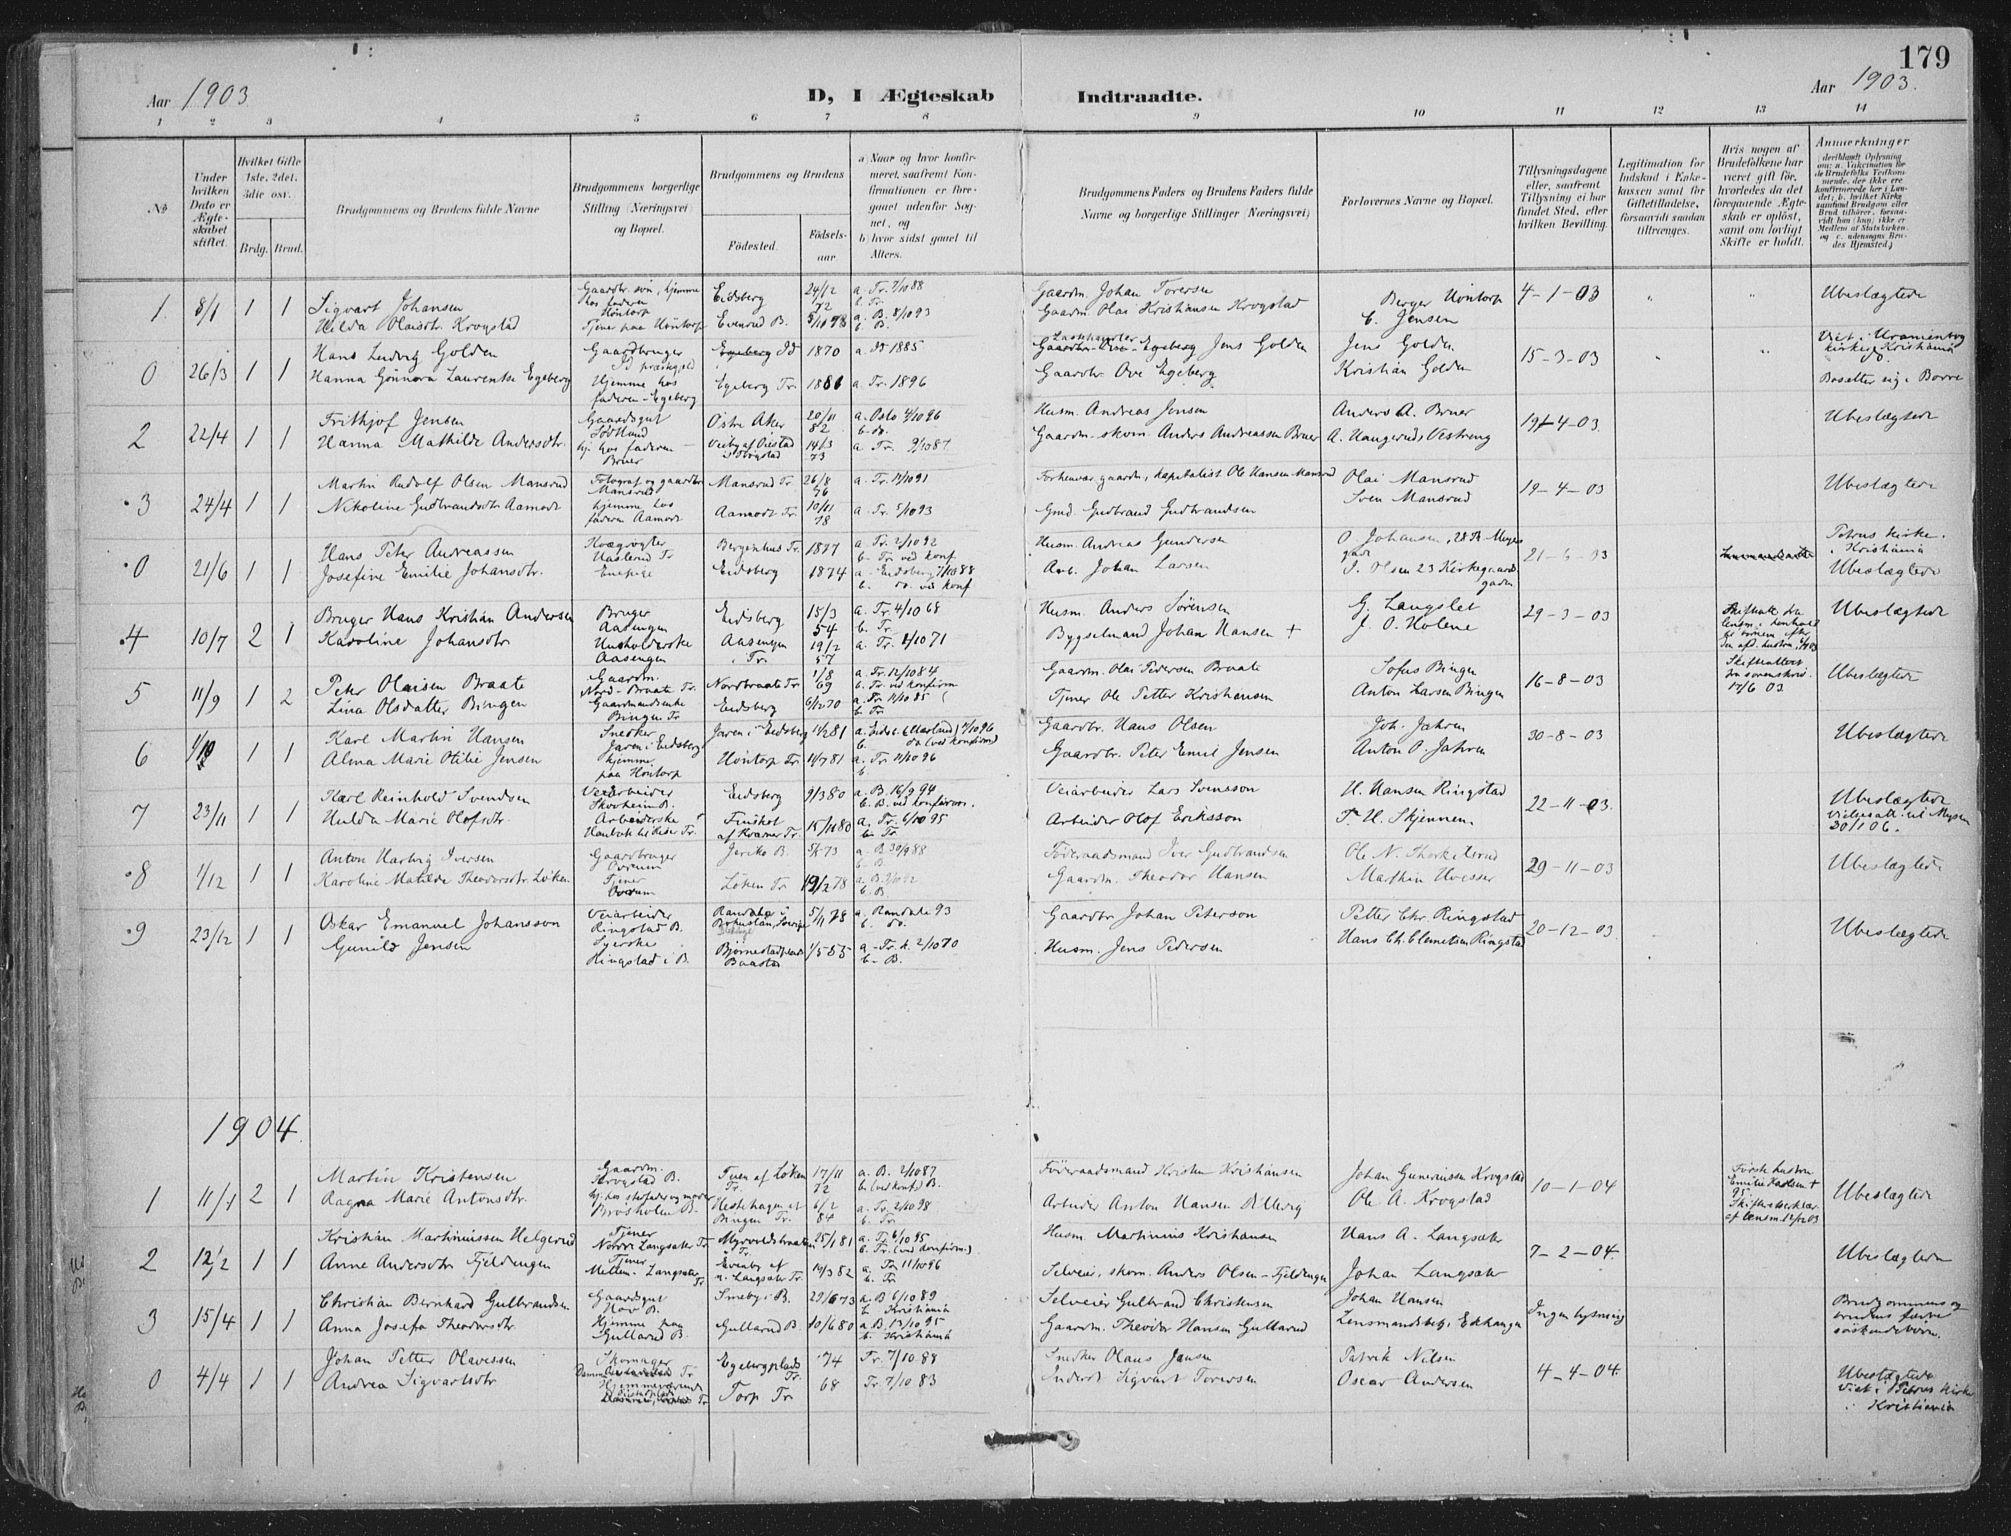 179
Aar 1903
D, I Ægteskab Indtraadte.
Aar 1903.
1 2 3 4 5 6 7 8 9 10 11 12 13 14
No
Under hvilken Dato er Ægteskabet stiftet.
Hvilket Gifte 1ste, 2det, 3die osv.
Brdg. Brud.
Brudgommens og Brudens fulde Navne
Brudgommens borgerlige Stilling (Næringsvei) og Bopæl.
Brudgommens og Brudens
Fødested.
Fødselsaar.
a) Naar og hvor konfirmeret, saafremt Konfirmationen er foregaaet udenfor Sognet, og
b) hvor sidst gaaet til Alters.
Brudgommens Faders og Brudens Faders fulde Navne og borgerlige Stillinger (Næringsvei)
Forlovernes Navne og Bopæl.
Tillysningsdagene eller, saafremt Tillysning ei har fundet Sted, efter hvilken Bevilling.
Legitimation for Indskud i Enkekassen samt for Giftetilladelse, forsaavidt saadan tiltrænges.
Hvis nogen af Brudefolkene har været gift før, hvorledes da det foregaaende Ægteskab er opløst, samt om lovligt Skifte er holdt.
Anmerkninger
deriblandt Oplysning om: a. Vakcination for de Brudefolks Vedkommende, der ikke ere konfirmerede her i Landet; b. hvilket Kirkesamfund Brudgom eller Brud tilhører, forsaavidt han (hun) ikke er Medlem af Statskirken, og c. udensogns Brudes Hjemsted.)
1. 8/1 1 1 Sigvart Johansen Gaardbr. søn, hjemme hos faderen Høntorp Eidsberg 24/12 72 a. Tr. 7/10 88 b. Tr. Gaardm. Johan Torersen Berger Høntorp 4-1-03 Ubeslægtede
Hilda Olaisdtr. Krogstad Tjener paa Høntorp Evenrud B. 5/10 78 a. B. 8/10 93 b. B. Gaardm. Olai Kristiansen Krogstad C. Jensen
0 26/3 1 1 Hans Ludvig Golden Gaardbruger Id præstegjeld Id 1870 a. Id 1885 Lasthandler Jens Golden Jens Golden 15-3-03 Viet i Uranienborg kirke, Kristiania
Hanna Gunnora Laurentse Egeberg Hjemme hos faderen-Egeberg Egeberg Tr. 1881 a. Tr. 1896 Gaardbr. Ove Egeberg Kristian Golden Bosetter sig i Borre
2 22/4 1 1 Frithjof Jensen Gaardsgut Østre Aker 20/11 82 a. Oslo 4/10 96 b. do. Husm. Andreas Jensen Anders A. Bruer 19-4-03 Ubeslægtede
Hanna Mathilde Andersdtr. hj. hos faderen Bruer 14/3 73 a. Tr. 9/10 87 Gaardm.-skom. Anders Andreassen Bruer A. Haugerud, Vestreng
3 24/4 1 1 Martin Rudolf Olsen Mansrud Fotograf og gaardbr. Mansrud Mansrud Tr. 26/8 76 a. Tr. 11/10 91 Forhenvær. gaardm., kapitalist Ole Hansen Mansrud Olai Mansrud 19-4-03 Ubeslægtede
Nikoline Gudbrandsdtr Aamodt hjemme hos faderen Aamodt Aamodt Tr. 10/11 78 a. Tr. 8/10 93 Gmd. Gudbrand Gudbrandsen Sven Mansrud
0 21/6 1 1 Hans Peter Andreassen Kvægvogter Haslerud Tr Bergenhus Tr. 1877 a. Tr. 2/10 92 b. Tr. ved konf Husm. Andreas Gundersen O. Johansen, 28 Th. Meyers gade 21-6-03 Petrus kirke i Kristiania
Josefine Emilie Johansdtr. Enepige Eidsberg 1874 a. Eidsberg 7/10 88 b. do. ved konf Arb. Johan Larsen J. Olsen 23 Kirkegaardsgaden Ubeslægtede
4 10/7 2 1 Bruger Hans Kristian Andersen Bruger Aasengen Eidsberg 15/3 54 a. Tr. 4/10 68 b. Tr. Husm. Anders Sørensen G. Langslet 29-3-03 Ubeslægtede
Karoline Johansdtr Husholderske Aasengen Aasengen i Tr. 19/2 57 a. Tr. 1/10 71 Bygselmand Johan Hansen + J. O. Holene
5 11/9 1 2 Peter Olaisen Braate Gaardm. Nord-Braate Tr. Nordbraate Tr. 1/8 69 a. Tr. 12/10 84 b. Tr. ved konfirm Gaardm. Olai Pedersen Braate Sofus Bingen 16-8-03 Skifteattest fra sorenskriv. 17/6 03 Ubeslægtede
Lina Olsdatter Bingen Gaardmandsenke Bingen Tr Eidsberg 6/12 70 a. Tr. 11/10 85 b. Tr Tjener Ole Petter Kristiansen Anton Larsen Bingen
6 1/10 1 1 Karl Martin Hansen Snedker Jaren i Eidsberg Jaren i Eidsberg 14/2 81 a. Eidsb. (Haslund) 4/10 96 b. do (ved konfirm) Gaardbr. Hans Olsen Joh. Jahren 30-8-03 Ubeslægtede
Alma Marie Otilie Jensen hjemme paa Høntorp Høntorp Tr 14/7 81 a. Tr. 11/10 96 b. Gaardbr. Peter Emil Jensen Anton O. Jahren
7 23/11 1 1 Karl Reinhold Svendsen Veiarbeider Skovheim B. Eidsberg 9/3 80 a. B. 16/9 94 b. B. ved konfirm. Veiarbeider Lars Svensson H. Hansen Ringstad 22-11-03 Ubeslægtede
Hulda Marie Olofsdtr. Arbeiderske Tr. 15/11 80 a. Tr. 6/10 95 b. Tr. Arbeider Olof Eriksson T. H. Skjennem 30/1 06.
8 1/12 1 1 Anton Hartvig Iversen Gaardbruger Ovrum Jeriko B. 5/5 73 a. B 30/9 88 b. B. Føderaadsmand Iver Gudbrandsen Ole N. Thorkelsrud 29-11-03 Ubeslægtede
Karoline Matilde Theodorsdtr. Løken Tjener Ovrum Løken Tr. 19/2 78 a. B. 2/10 92 b. B Gaardm. Theodor Hansen Marthin Huesser
9 23/12 1 1 Oskar Emanuel Johansson Veiarbeider Ringstad B. Randale i Bohuslän, Sverige 5/11 78 a. Randale 93 b. do. Gaardbr Johan Peterson Petter Chr. Ringstad 20-12-03 Ubeslægtede
Gunild Jensen Syerske Ringstad i B. Bjørnestad Baastad 1/5 55 a. Tr. k. 2/10 70 b. B. Husm. Jens Pedersen Hans Ch. Clemetsen Ringstad
1904.
1 11/1 2 1 Martin Kristensen Gaardm. Krogstad B. Tuen af Løken Tr. 17/11 72 a. B. 2/10 87 b. (ved konf.) B. Føderaadsmand Kristen Kristiansen Johan Gunerussen Krogstad 10-1-04 Første hustru Emilie + 95. Ubeslægtede
Aagna Marie Antonsdtr. hj. hos stiffader og moder Brosholen B. Hestehagen af Bingen Tr. 6/2 84 a. Tr. 2/10 98 b. Tr Arbeider Anton Hansen Dillevig Ole A. Krogstad
2 12/2 1 1 Kristian Martiniussen Helgerud Tjener Nordre Langsæter Tr. Myrvoldsbraaten Tr. 25/1 81 a. Tr 6/10 95 b. Tr. (ved konfirm.) Husm. Martinius Kristiansen Hans A. Langsæter 7-2-04 Ubeslægtede
Anne Andersdtr Fjeldengen Tjener Mellem-Langsæter Tr Evenby af n. Langsæter Tr. 14/3 82 a. Tr. 11/10 96 b. Tr Selveier, skom. Anders Olsen-Fjeldengen Johan Langsæter
3 15/4 1 1 Christian Bernhard Gulbrandsen Gaardsgut Hov B. Smeby i B. 29/6 73 a. B 6/10 89 b. Kristiania Selveier Gulbrand Christensen Johan Hansen Ingen lysning Brudgommens og brudens fædre søskendebørn.
Anna Josefa Theodorsdtr. Hjemme paa Gullarud B. Gullarud B. 10/6 80 a. B. 13/10 95 b. Kristiania Gaardm. Theodor Hansen Gullarud Lensmandsbetj. Eskhaugen
0 4/4 1 1 Johan Petter Olavessen Skomager Egebergplads Tr. 74 Tr. 7/10 88 Snedker Olaus Jansen Patrik Nilsen 4-4-04. Ubeslægtede
Andrea Sigvartsdtr Hjemmeværende Torp Tr 68 Tr. 7/10 83 Inderst Sigvart Torersen Oscar Andersen Viet i Petrus kirke i Kristiania